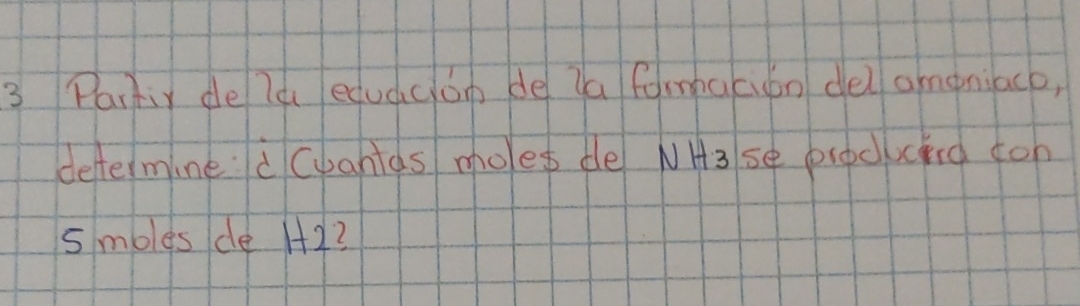 3 Partir de la ecuación de la formación del amoniaco,
determine: ¿Cuantas moles de NH3 se producirá con
5 moles de H2?